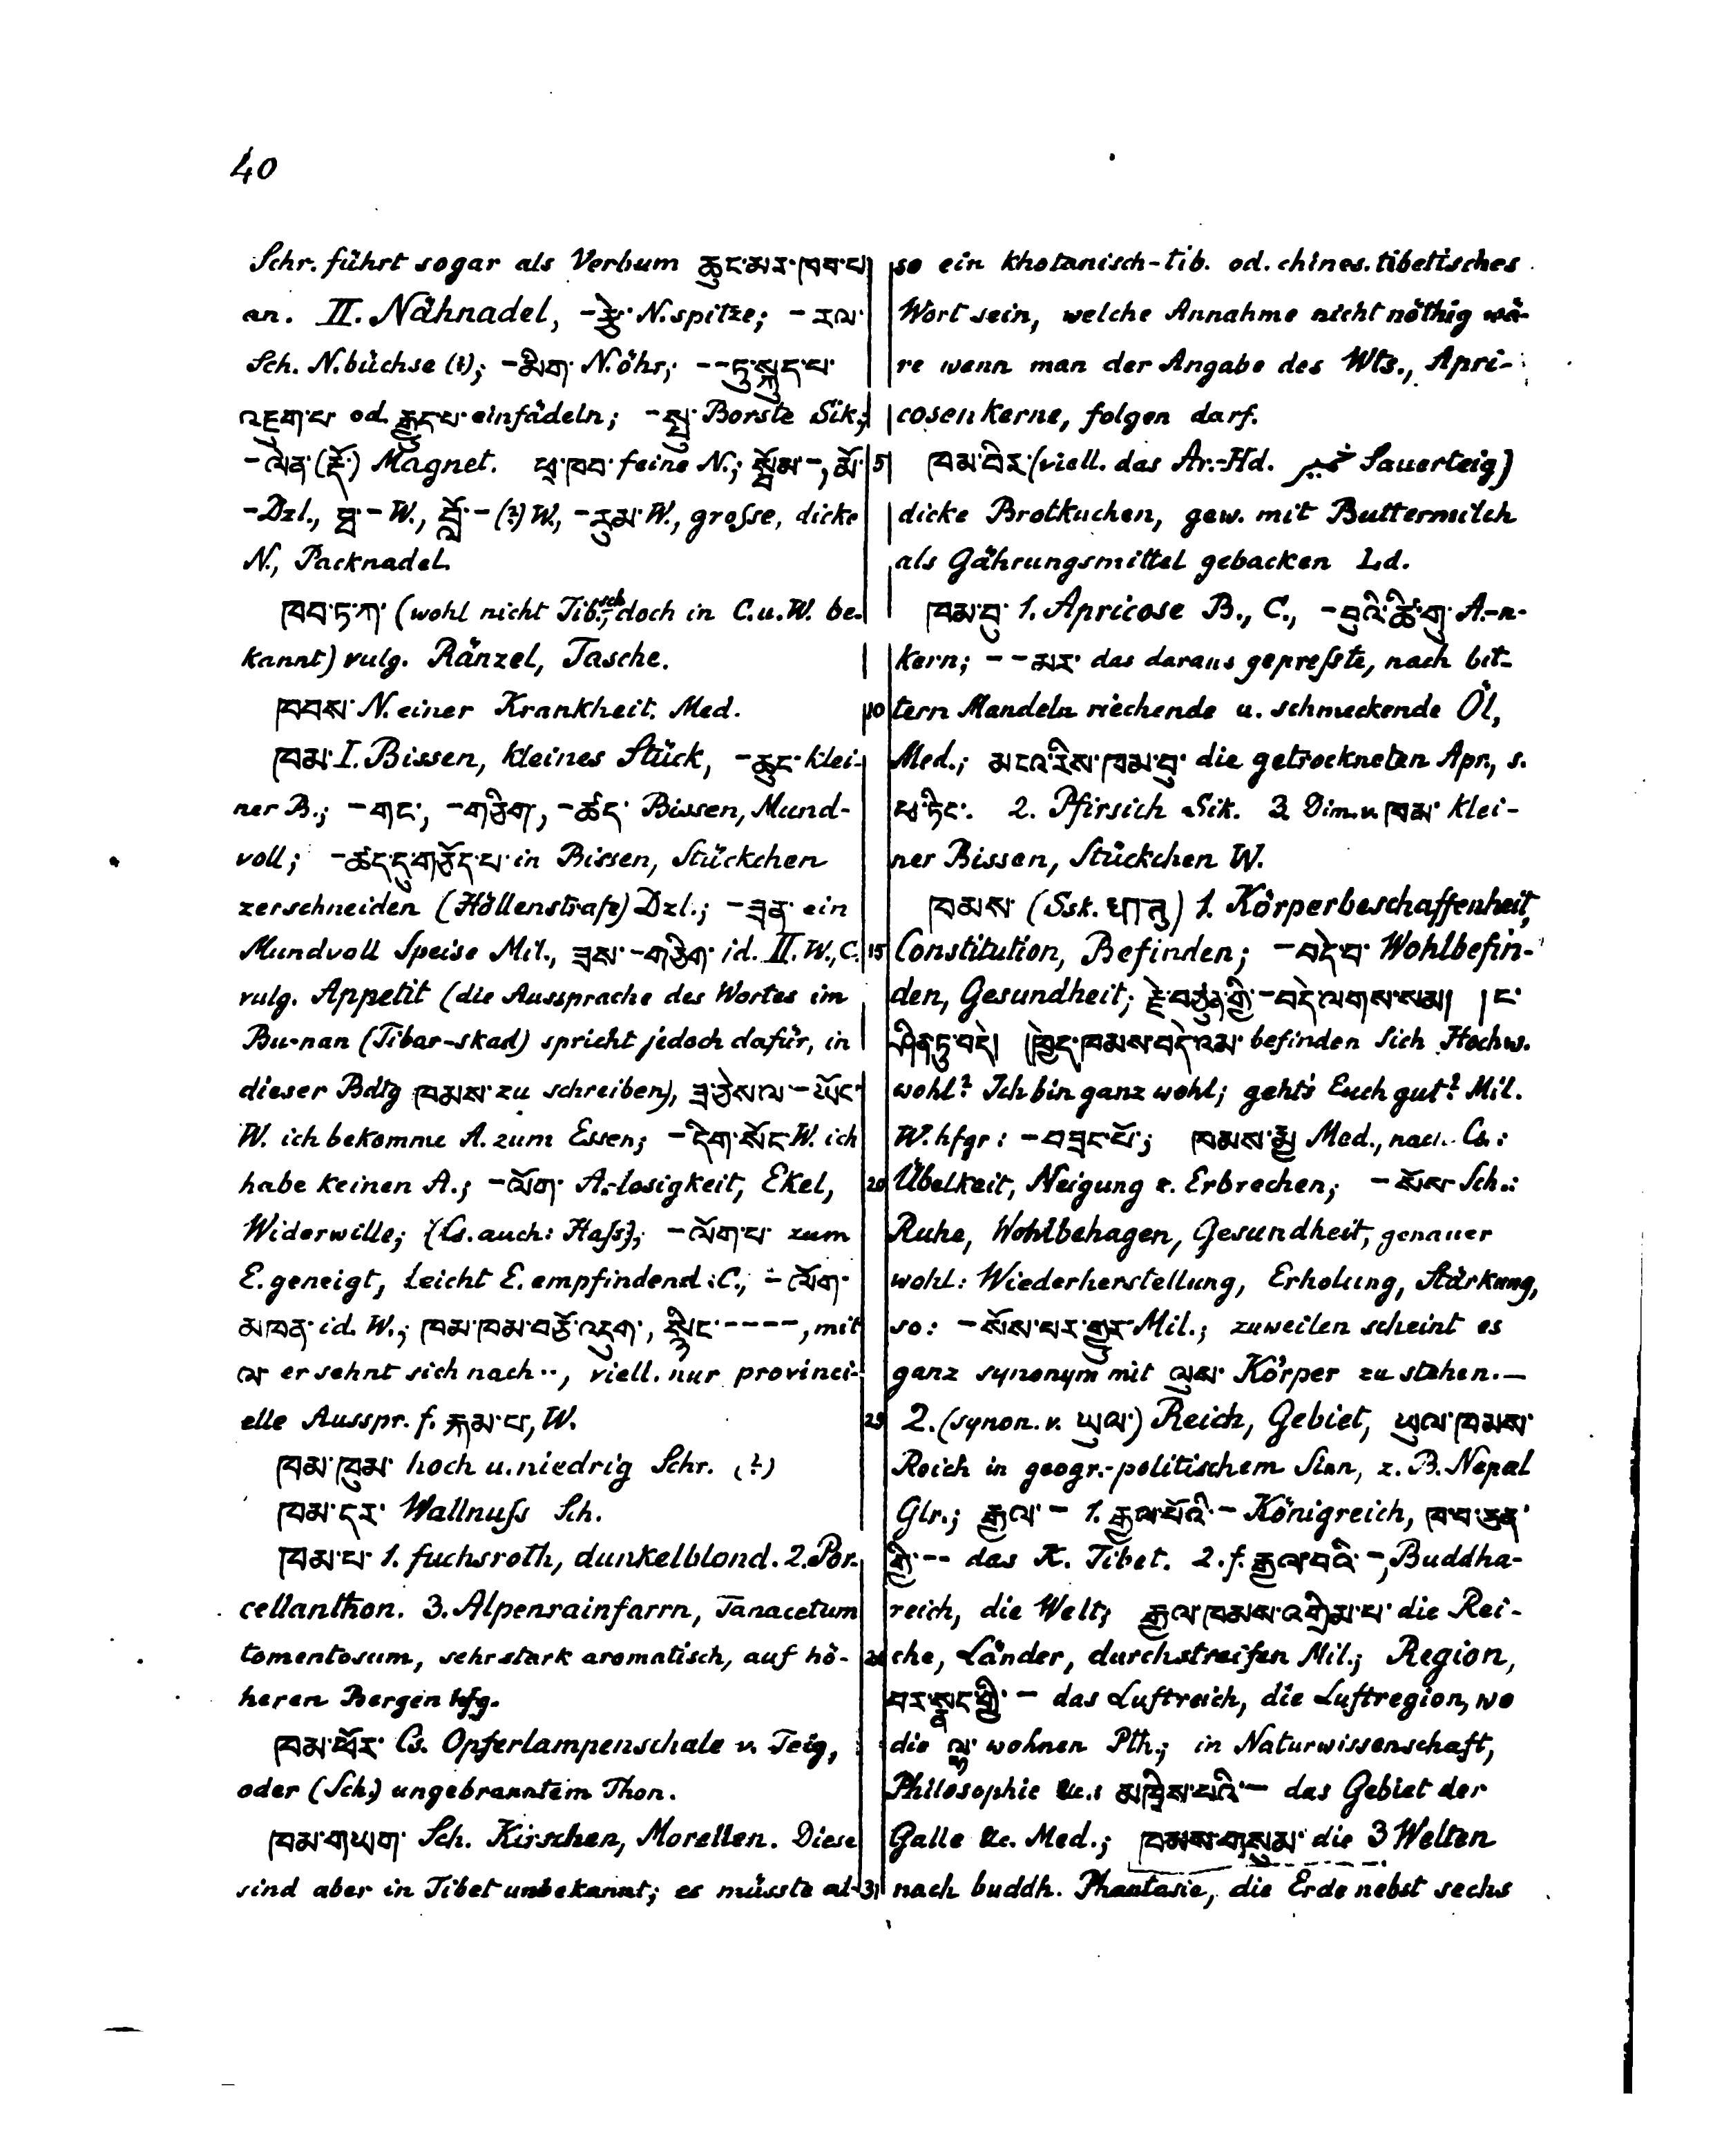 40
Schr. führt sogar als Verbum ཆུང་མར་ཁབ་པ།
an. II. Nähnadel, -རྩེ་ N.spitze; - རལ་
Sch. N.büchse (?); -མིག་ N.öhr; --ཏུ་སྐུད་པ་
འཇུག་པ་ od. རྒྱུད་པ་ einfädeln; -སྤུ་ Borste Sik.;
-ལེན་ (རྡོ་) Magnet. ཕྲ་ཁབ་ feine N.; སྦོམ་-, མོ་
-Dzl., - W., - (?) W., -རུམ་ W., grosse, dicke
N., Packnadel.
ཁབ་ཏ་ཀ་ (wohl nicht Tib.sch, doch in C. u. W. be-
kannt) vulg. Ränzel, Tasche.
ཁབས་ N. einer Krankheit. Med.
ཁམ་ I. Bissen, kleines Stück, -ཆུང་ klei-
ner B.; -གང་, -གཅིག, -ཚད་ Bissen, Mund-
voll; -ཚད་དུ་གཅོད་པ་ in Bissen, Stückchen
zerschneiden (Höllenstrafe) Dzl.; -ཟན་ ein
Mundvoll Speise Mil., ཟས་-གཅིག་ id. II. W., C.
vulg. Appetit (die Aussprache des Wortes im
Bu-nan (Tibar-skad) spricht jedoch dafür, in
dieser Bdtg ཁམས་ zu schreiben), ཟ་ཅེས་ལ་-ཡོང་
W. ich bekomme A. zum Essen; -དིག་སོང་ W. ich
habe keinen A.; -ལོག་ A.-losigkeit, Ekel,
Widerwille; (Cs. auch: Haſs); -ལོག་པ་ zum
E. geneigt, leicht E. empfindend C., -ལོག་
མཁན་ id. W.; ཁམ་ཁམ་བཅོ་འདུག་, སྙིང་----, mit
ལ་ er sehnt sich nach.., viell. nur provinci-
elle Ausspr. f. རྐམ་པ་, W.
ཁམ་ཁུམ་ hoch u. niedrig Schr. (?)
ཁམ་དར་ Wallnuſs Sch.
ཁམ་པ་ 1. fuchsroth, dunkelblond. 2. Por-
cellanthon. 3. Alpenrainfarrn, Tanacetum
tomentosum, sehr stark aromatisch, auf hö-
heren Bergen hfg.
ཁམ་ཕོར་ Cs. Opferlampenschale v. Teig,
oder (Sch.) ungebranntem Thon.
ཁམ་གཡག་ Sch. Kirschen, Morellen. Diese
sind aber in Tibet unbekannt; es müsste al-
so ein khotanisch-tib. od. chines. tibetisches
Wort sein, welche Annahme nicht nöthig wä-
re wenn man der Angabe des Wts., Apri-
cosenkerne, folgen darf.
5 ཁམ་བིར་ (viell. das Ar.-Hd. خمير Sauerteig)
dicke Brotkuchen, gew. mit Buttermilch
als Gährungsmittel gebacken Ld.
ཁམ་བུ་ 1. Apricose B., C., -བུའི་ཚི་གུ་ A.-n-
kern; --མར་ das daraus gepreſste, nach bit-
10 tern Mandeln riechende u. schmeckende Öl,
Med.; མངའ་རིས་ཁམ་བུ་ die getrockneten Apr., s.
ཕ་ཏིང་. 2. Pfirsich Sik. 3. Dim. v. ཁམ་ klei-
ner Bissen, Stückchen W.
ཁམས་ (Ssk. धातु) 1. Körperbeschaffenheit,
15 Constitution, Befinden; -བདེ་བ་ Wohlbefin-
den, Gesundheit; རྗེ་བཙུན་གྱི་-བདེ་ལགས་སམ། ། ང་
ཤིན་ཏུ་བདེ། ཁྱེད་ཁམས་བདེ་འམ་ befinden Sich Hochw.
wohl? Ich bin ganz wohl; geht's Euch gut? Mil.
W. hfgr: -བཟང་པོ་; ཁམས་རྨྱ་ Med., nach Cs.:
20 Übelkeit, Neigung z. Erbrechen; -སོས་ Sch.:
Ruhe, Wohlbehagen, Gesundheit, genauer
wohl: Wiederherstellung, Erholung, Stärkung,
so: -སོས་པར་གྱུར་ Mil.; zuweilen scheint es
ganz synonym mit ལུས་ Körper zu stehen.—
25 2. (synon. v. ཡུལ་) Reich, Gebiet, ཡུལ་ཁམས་
Reich in geogr.-politischem Sinn, z. B. Nepal
Glr.; རྒྱལ་- 1. རྒྱལ་པོའི་- Königreich, ཁ་བ་ཅན་
གྱི་-- das K. Tibet. 2. f. རྒྱལ་བའི་-, Buddha-
reich, die Welt; རྒྱལ་ཁམས་འགྲིམ་པ་ die Rei-
che, Länder, durchstreifen Mil.; Region,
བར་སྣང་གྱི་- das Luftreich, die Luftregion, wo
die ལྷ་ wohnen Pth.; in Naturwissenschaft,
Philosophie &c.: མཁྲིས་པའི་- das Gebiet der
Galle &c. Med.; ཁམས་གསུམ་ die 3 Welten
31 nach buddh. Phantasie, die Erde nebst sechs